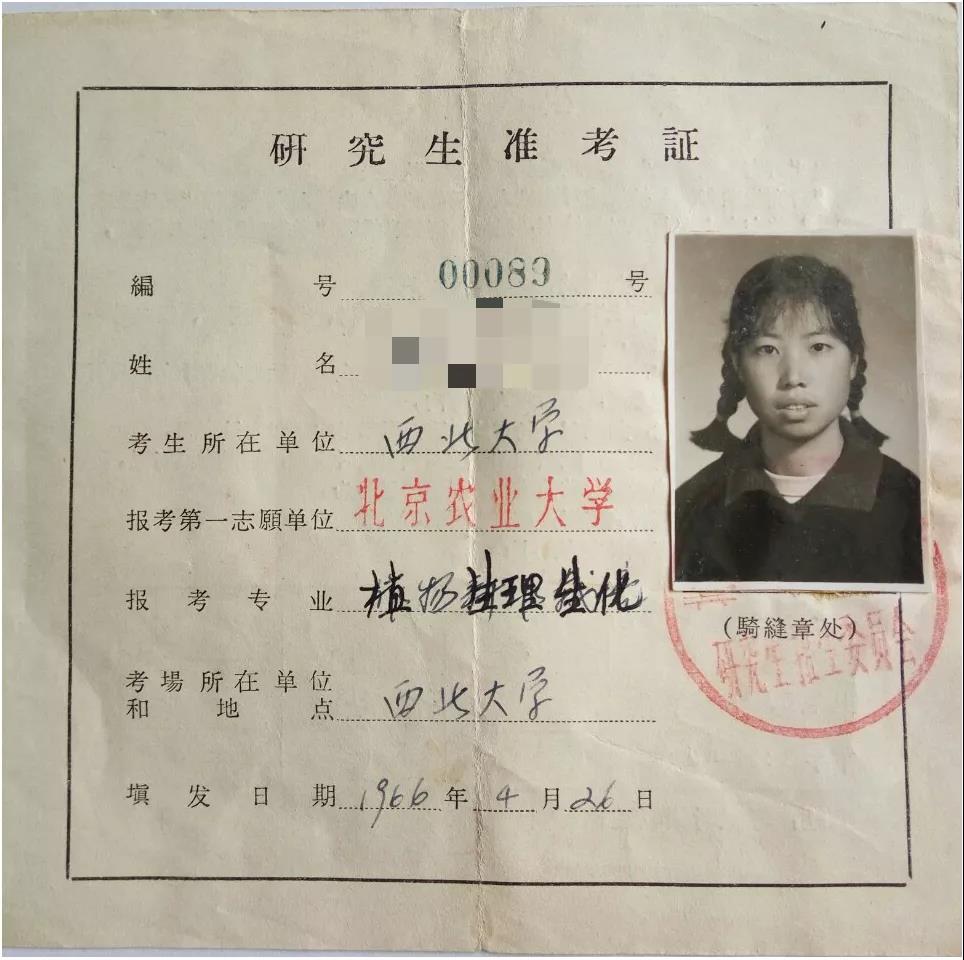 研究生准考証
編号 00089 号
姓名
考生所在单位 西北大学
报考第一志願单位 北京农业大学
报考专业 植物生理生化
考場所在单位
和地点 西北大学
填发日期 1966 年 4 月 26 日
(騎縫章处)
研究生招生委员会